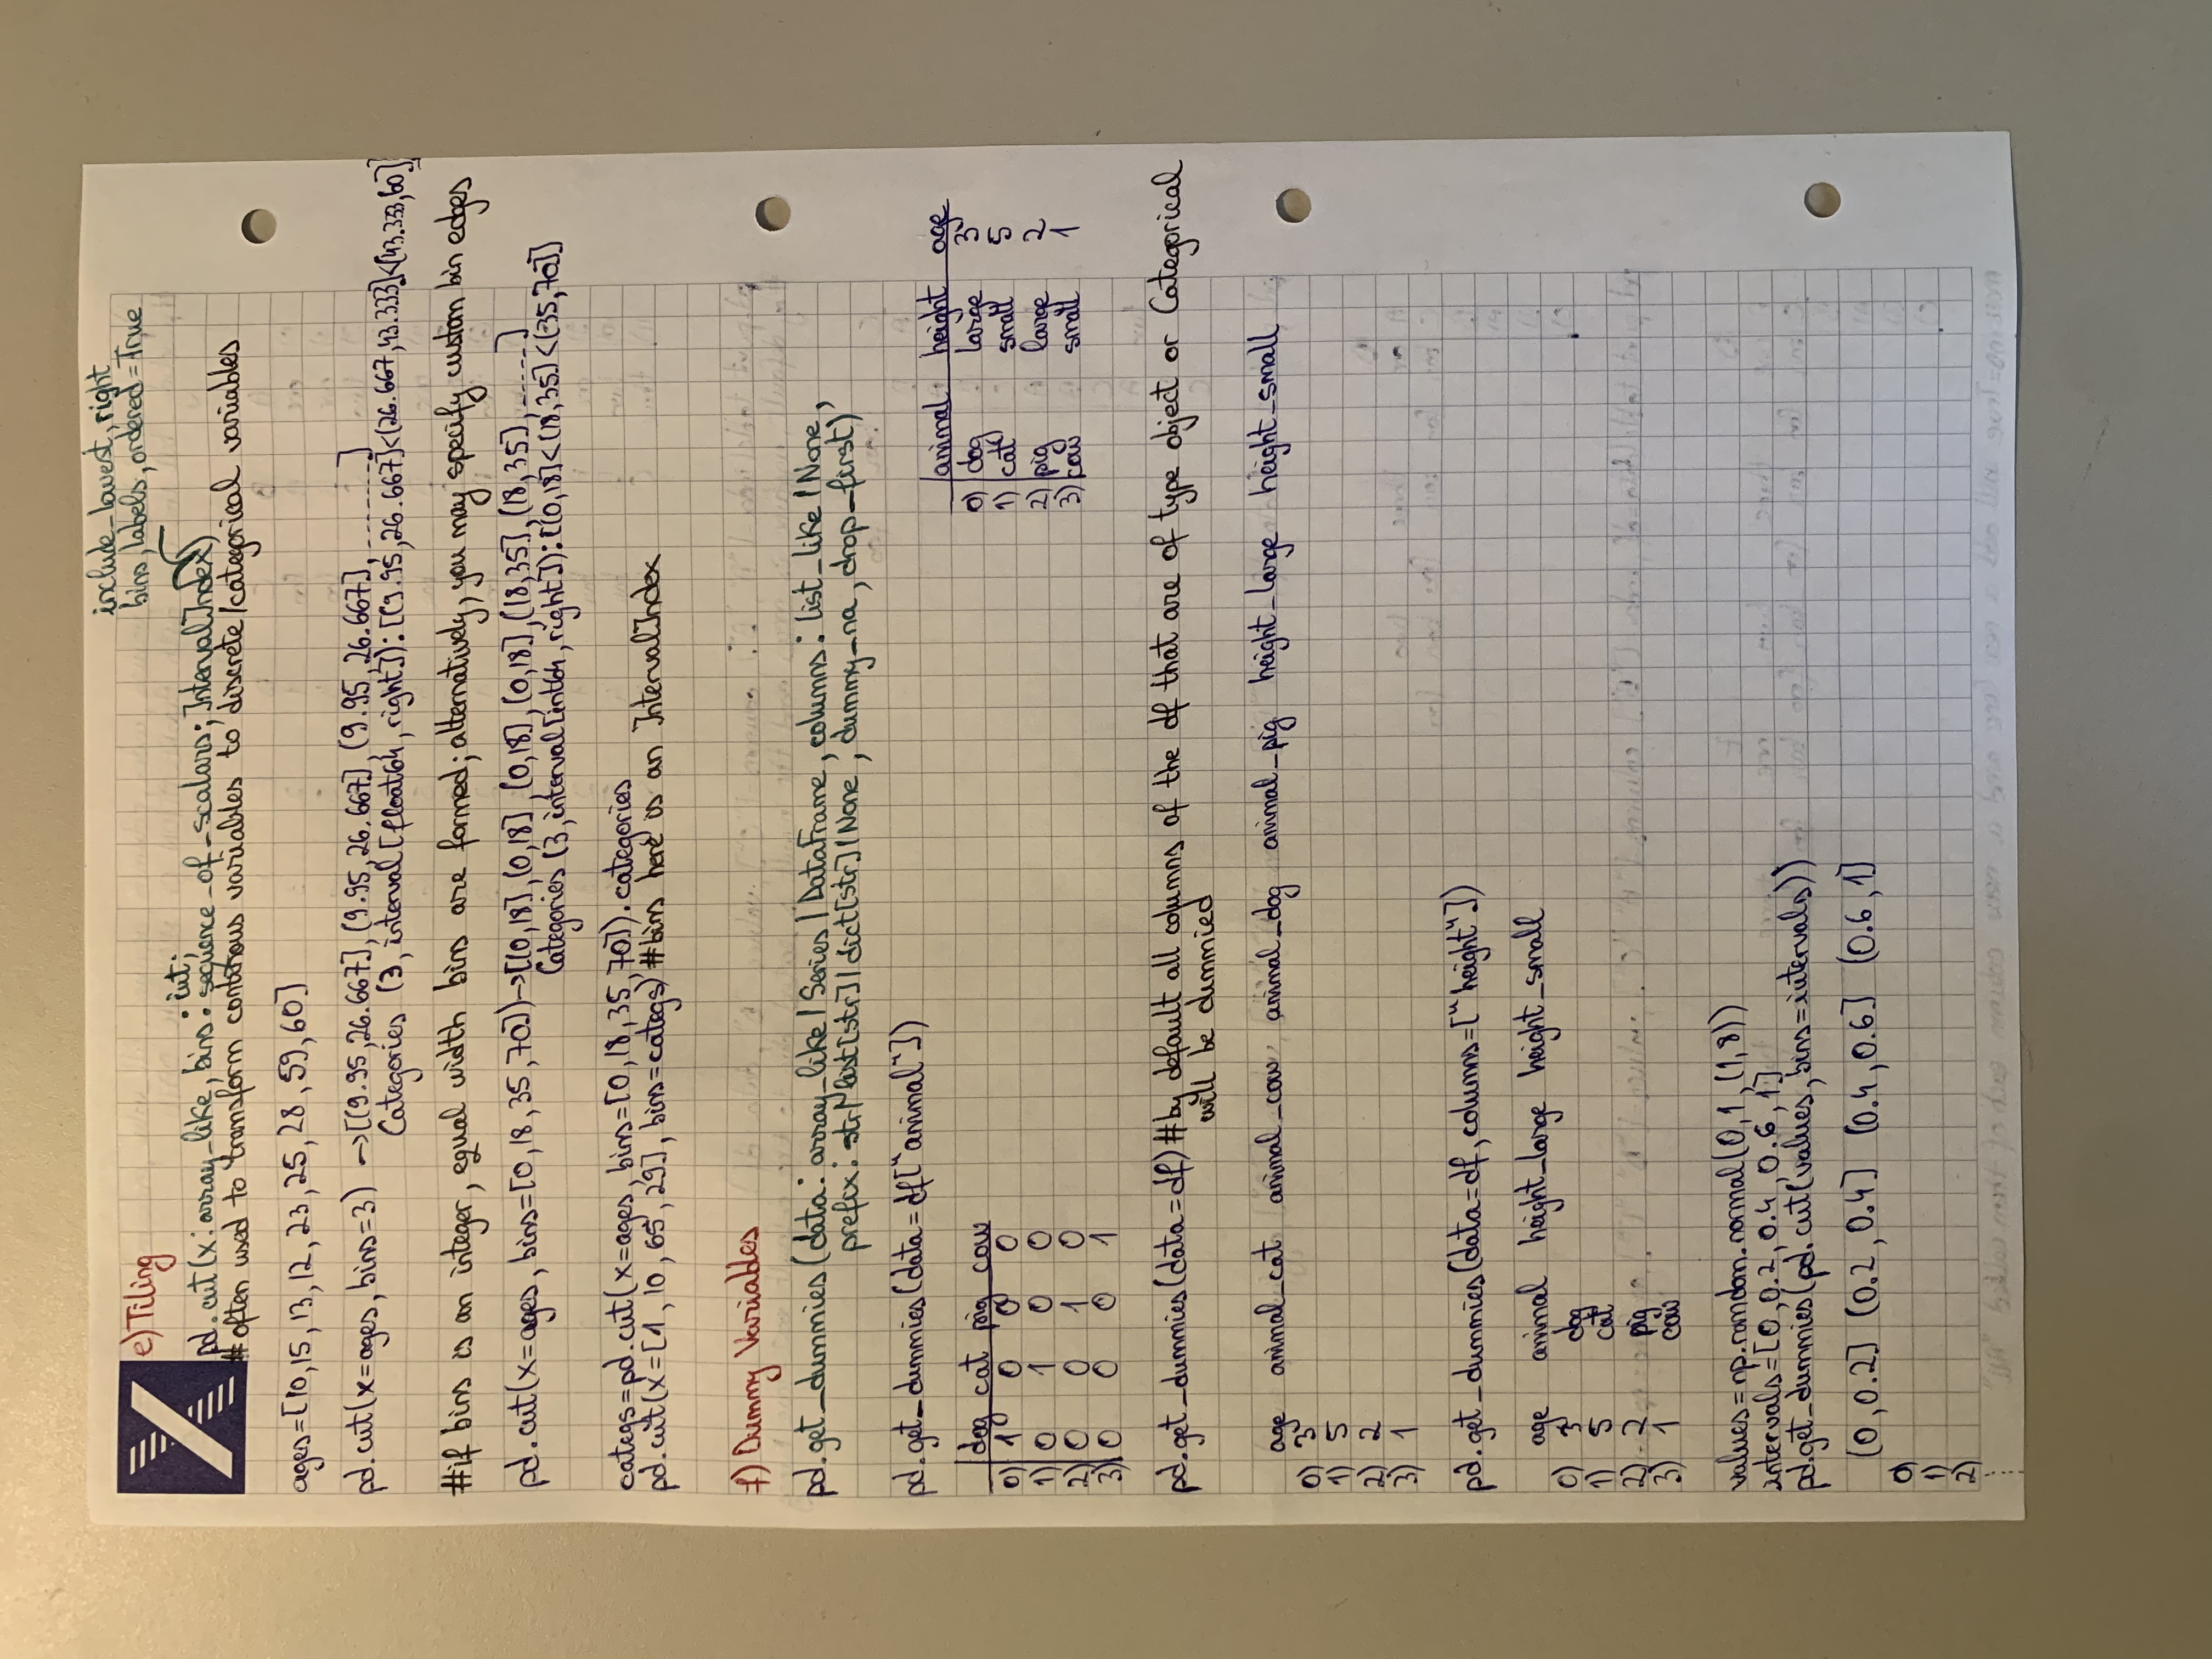 include_lowest, right
bins, labels, ordered=True
e) Tiling
pd.cut(x: array-like, bins: int;
sequence-of-scalars; IntervalIndex)
# often used to transform continous variables to discrete/categorical variables
ages=[10,15,13,12,23,25,28,59,60]
pd.cut(x=ages, bins=3) ->[(9.95,26.667], (9.95,26.667], (9.95,26.667], (9.95,26.667], --------]
Categories (3, interval[float64, right]): [(9.95,26.667]<(26.667,43.333]<(43.333,60]]
#if bins is an integer, equal width bins are formed; alternatively, you may specify custom bin edges
pd.cut(x=ages, bins=[0,18,35,70])->[(0,18], (0,18], (0,18], (0,18], (18,35], (18,35], -----]
Categories (3, interval[int64, right]): [(0,18]<(18,35]<(35,70]]
categs=pd.cut(x=ages, bins=[0,18,35,70]).categories
pd.cut(x=[1,10,65,29], bins=categs) #bins here is an IntervalIndex
f) Dummy Variables
pd.get_dummies(data: array-like | Series | DataFrame, columns: list_like | None,
prefix: str | list[str] | dict[str] | None, dummy_na, drop_first)
pd.get_dummies(data=df["animal"])
dog cat pig cow
0) 1 0 0 0
1) 0 1 0 0
2) 0 0 1 0
3) 0 0 0 1
animal height age
0) dog large 3
1) cat small 5
2) pig large 2
3) cow small 1
pd.get_dummies(data=df) #by default all columns of the df that are of type object or Categorical
will be dummied
age animal_cat animal_cow animal_dog animal_pig height_large height_small
0) 3
1) 5
2) 2
3) 1
pd.get_dummies(data=df, columns=["height"])
age animal height_large height_small
0) 3 dog
1) 5 cat
2) 2 pig
3) 1 cow
values=np.random.normal(0,1,(1,8))
intervals=[0,0.2,0.4,0.6,1]
pd.get_dummies(pd.cut(values, bins=intervals))
(0,0.2] (0.2,0.4] (0.4,0.6] (0.6,1]
0)
1)
2)